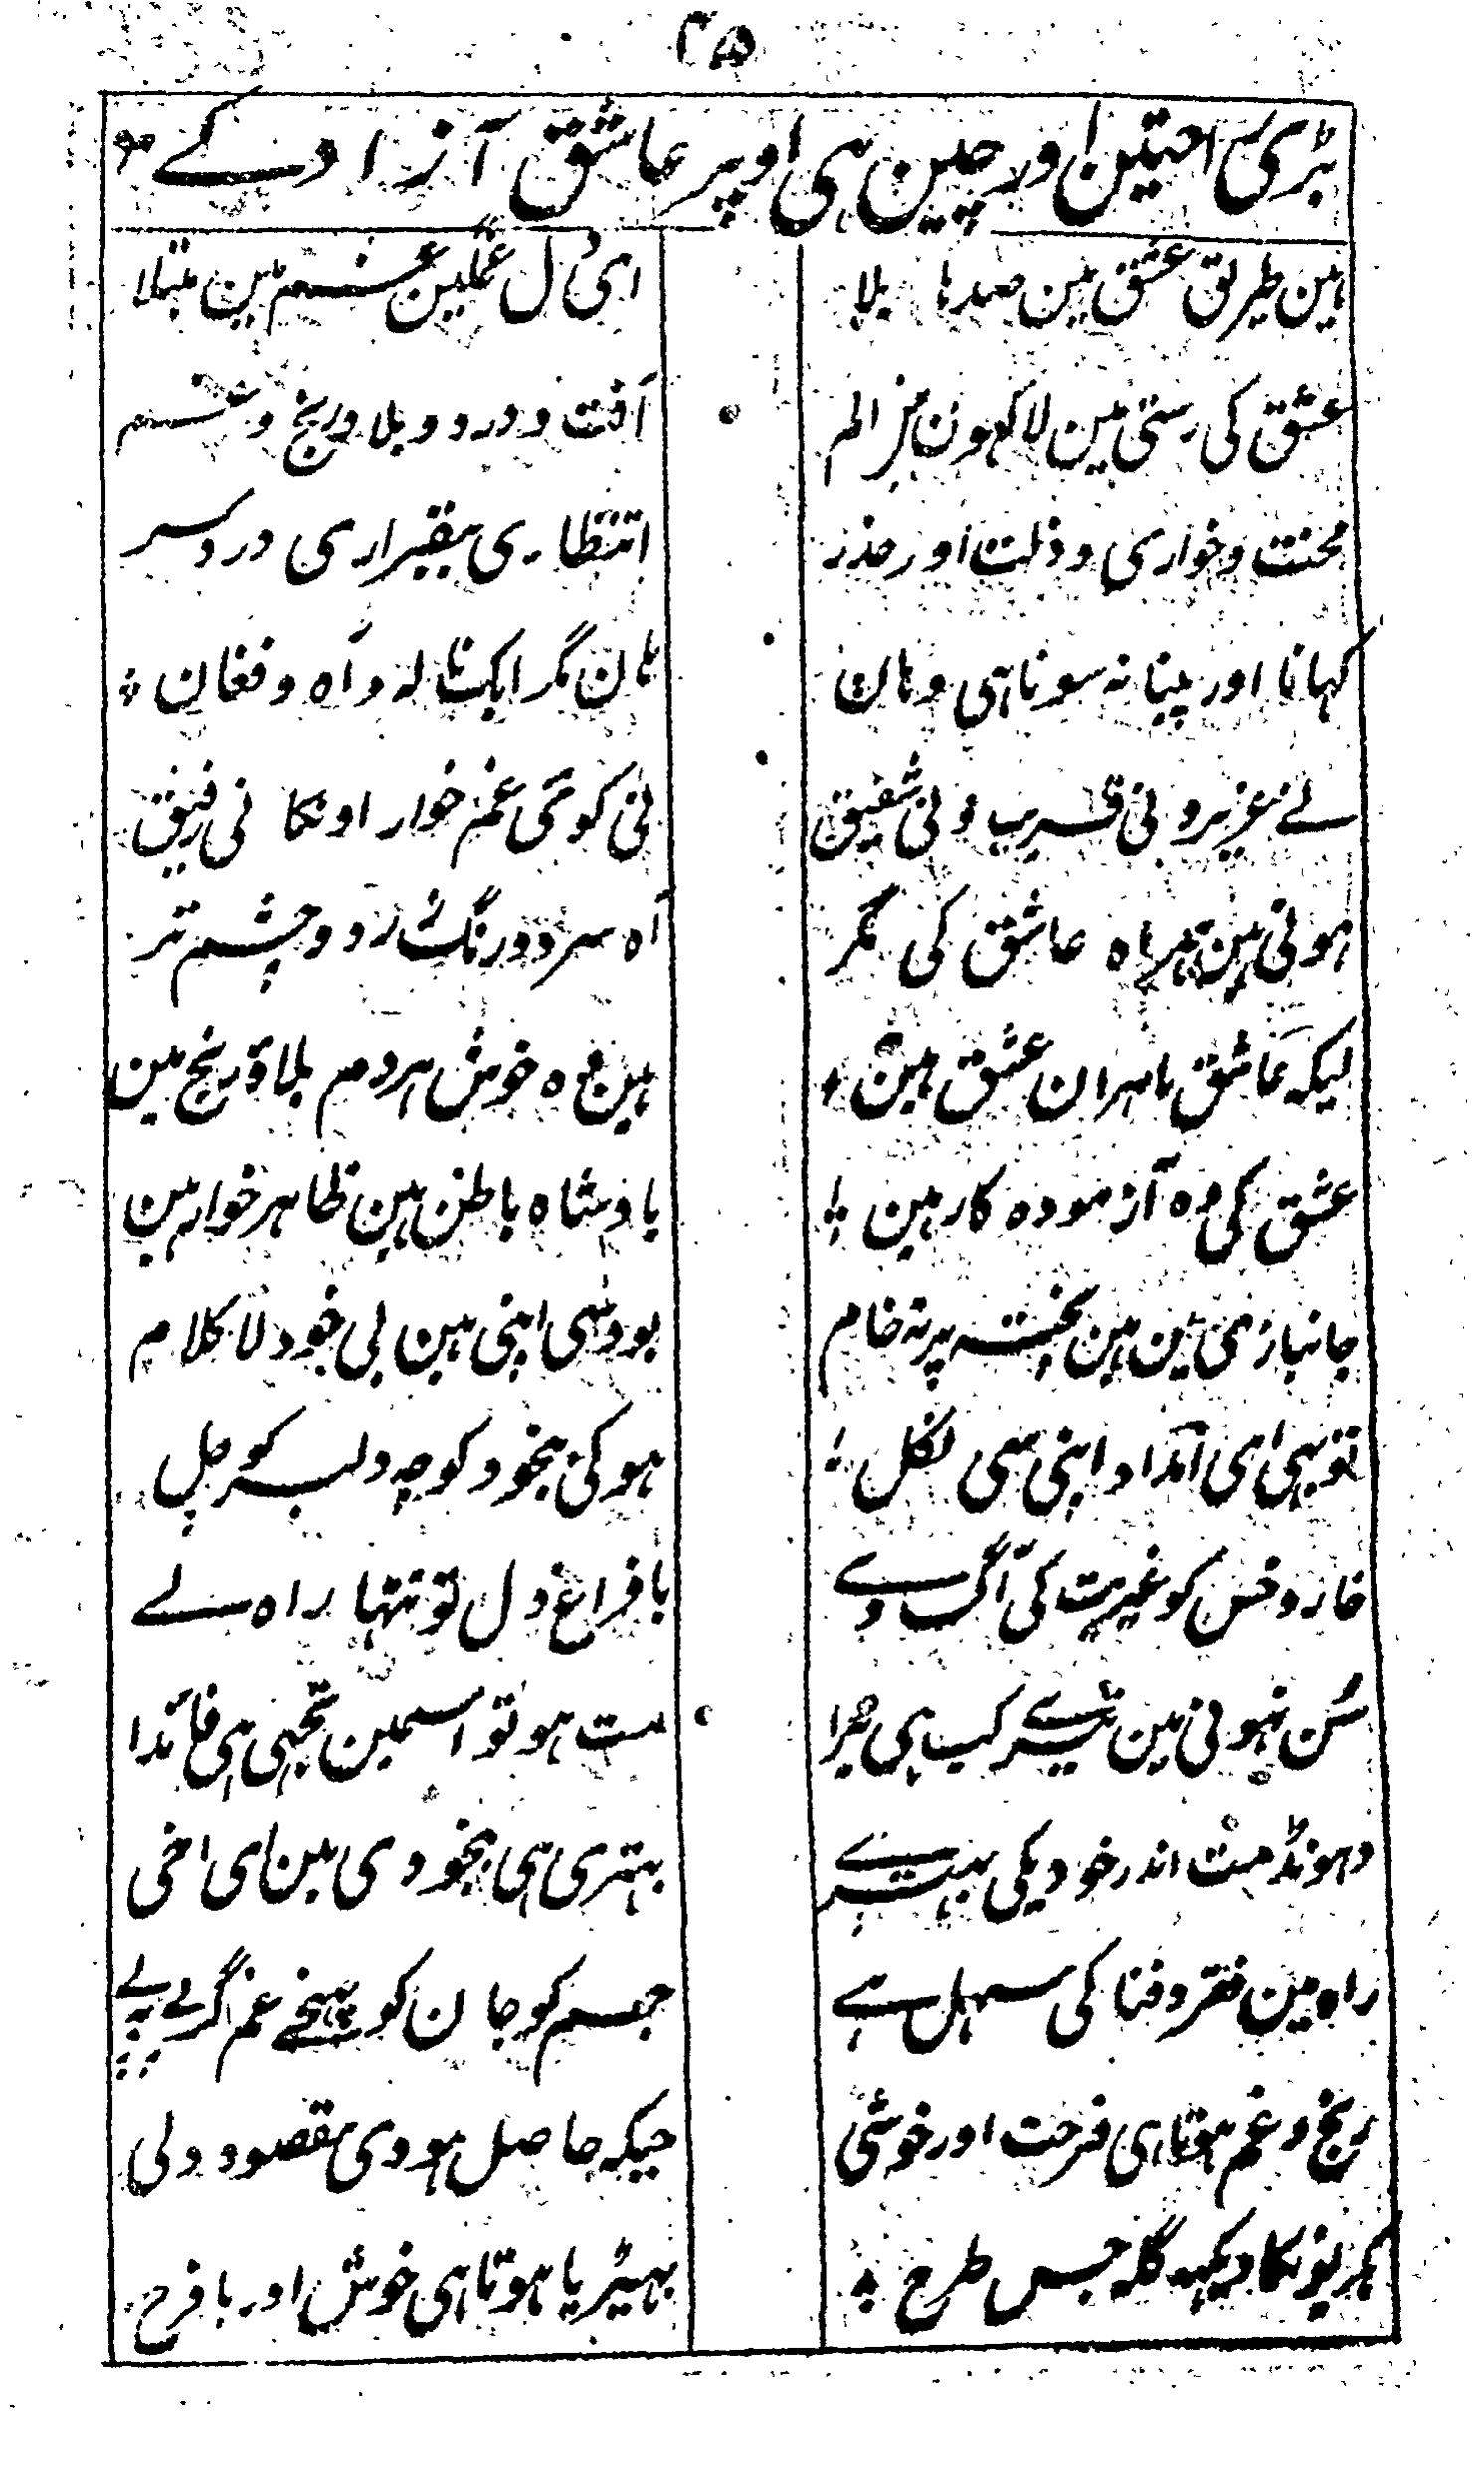 ۳۵
بڑی راحتین اور چین ہی اوپر عاشق آزاد کے
ہین طریق عشق مین صدہا بلا
ای دل غمگین غم مین مبتلا
عشق کی رستی مین لاکھون ہن الم
آفت و درد و بلا و رنج و غم
محنت و خواری و ذلت اور حذر
انتظاری بیقراری درد سر
کہانا اور پینا نہ سونا ہی وہان
ہان مگر ایک نالہ و آہ و فغان
نے عزیز و نی قریب و نی شفیق
نی کوئی غم خوار اونکا نی رفیق
ہوتی ہین ہمراہ عاشق کی مگر
آہ سرد و رنگ زرد و چشم تر
لیکہ عاشق ماہران عشق ہین
ہین وہ خوش ہر دم بلا و رنج مین
عشق کی وہ آزمودہ کار ہین
بادشاہ باطن ہین ظاہر خوار ہین
جانبازی مین ہین پختہ پر نہ خام
بود سی اپنی ہین بی خود لا کلام
تو بہی ای آزاد اپنی سی نکل
ہو کی بیخود کوچہ دلبر کو چل
خار و خس کو غیریت کی آگ دے
با فراغ دل تو تنہا راہ لے
سُن نہونی مین تیرے کب ہی مزا
مست ہو تو اسمین تجہی ہی فائدا
دہونڈ مت اندر خودیکی بہترے
بہتری ہی بیخودی مین ای اخی
راہ مین فقر و فنا کی سہل ہے
جسم کو جان کو پہنچے غم گر پے پے
رنج و غم ہوتا ہی فرحت اور خوشی
جبکہ حاصل ہووی مقصود دلی
بکریونکا دیکہہ گلہ جس طرح
بہیڑیا ہوتا ہی خوش اور با فرح